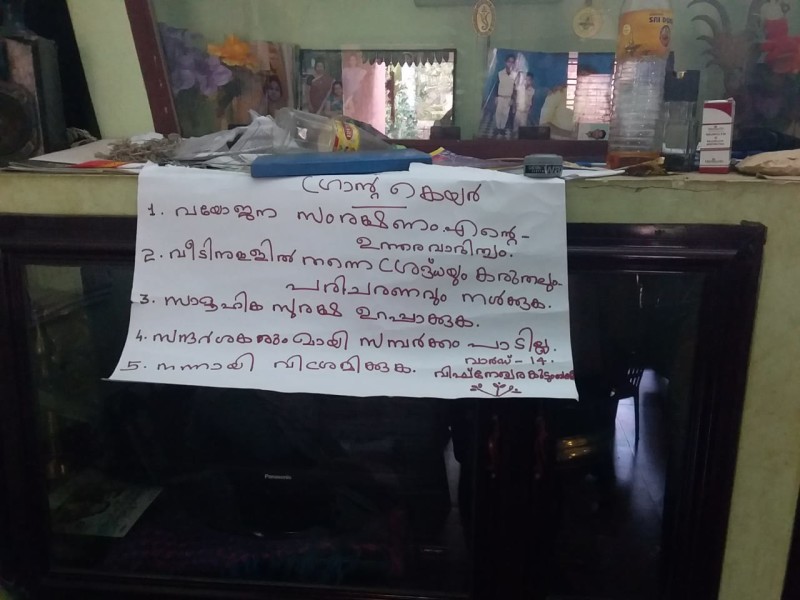 ഗ്രാന്റ് കെയർ
1. വയോജന സംരക്ഷണം എന്റെ-
ഉത്തരവാദിത്വം.
2. വീടിനുള്ളിൽ തന്നെ ശ്രദ്ധയും കരുതലും-
പരിചരണവും നൽകുക.
3. സാമൂഹിക സുരക്ഷ ഉറപ്പാക്കുക.
4. സന്ദർശകരുമായി സമ്പർക്കം പാടില്ല.
5. നന്നായി വിശ്രമിക്കുക.
വാർഡ് - 14.
വിഘ്നേശ്വര
Panasonic